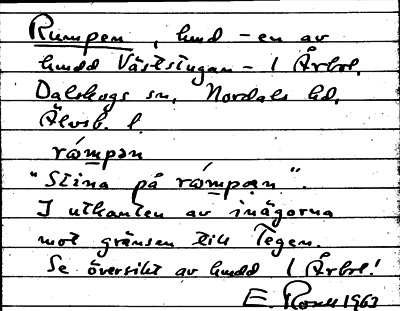 Rumpen, hmd - en av
hmdd Väststugan - i Årbol,
Dalskogs sn, Nordals hd,
Älvsb. l.
rómpən
"Stina på rómpən".
I utkanten av inägorna
mot gränsen till Tegen.
Se översikt av hmdd i Årbol!
E. 1963